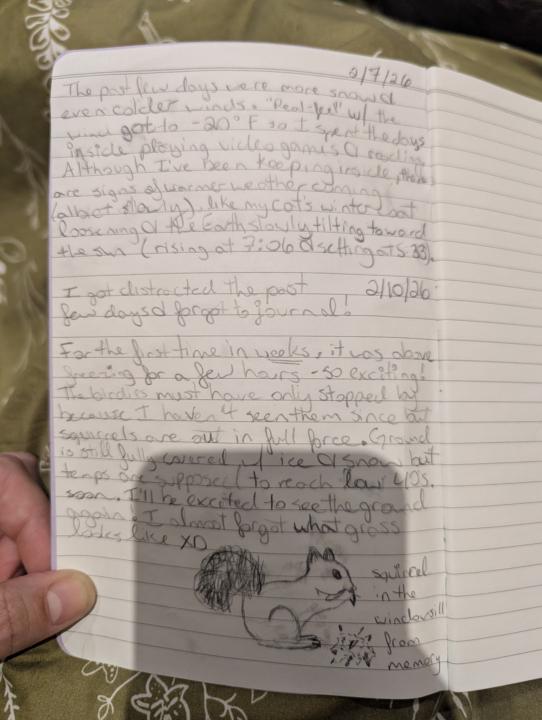 2/7/26
The past few days were more snow &
even colder winds. "Real-feel" w/ the
wind got to -20°F so I spent the days
inside playing video games & reading.
Although I've been keeping inside, there
are signs of warmer weather coming
(albeit slowly), like my cat's winter coat
loosening & the Earth slowly tilting toward
the sun (rising at 7:06 & setting at 5:33).
2/10/26
I got distracted the past
few days & forgot to journal!
For the first time in weeks, it was above
freezing for a few hours - so exciting!
The birdies must have only stopped by
because I haven't seen them since but
squirrels are out in full force. Ground
is still fully covered w/ ice & snow but
temps are supposed to reach low 40s
soon. I'll be excited to see the ground
again! I almost forgot what grass
looks like XD
squirrel
in the
windowsill
from
memory